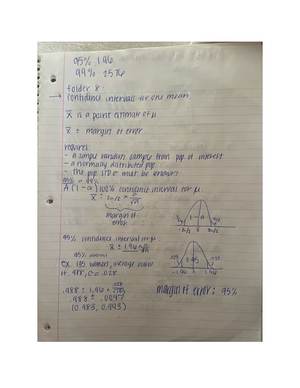 95% 1.96
99% 2.576
Folder 8:
Confidence intervals for one mean
x̄ is a point estimate of μ
x̄ ± margin of error
requires:
- a simple random sample from pop of interest
- a normally distributed pop.
- the pop. STD σ must be known
A (1-α)100% confidence interval for μ
x̄ ± z α/2 · σ/√n
margin of
error
α/2 1-α α/2
-zα/2 zα/2
95% confidence interval for μ
x̄ ± 1.96 σ/√n
.025 0.95 .025
-1.96 1.96
ex. 135 women, average ratio
of .988, σ = .028
.988 ± 1.96 · .028/√135
.988 ± .0047
(0.983, 0.993)
margin of error: 95%